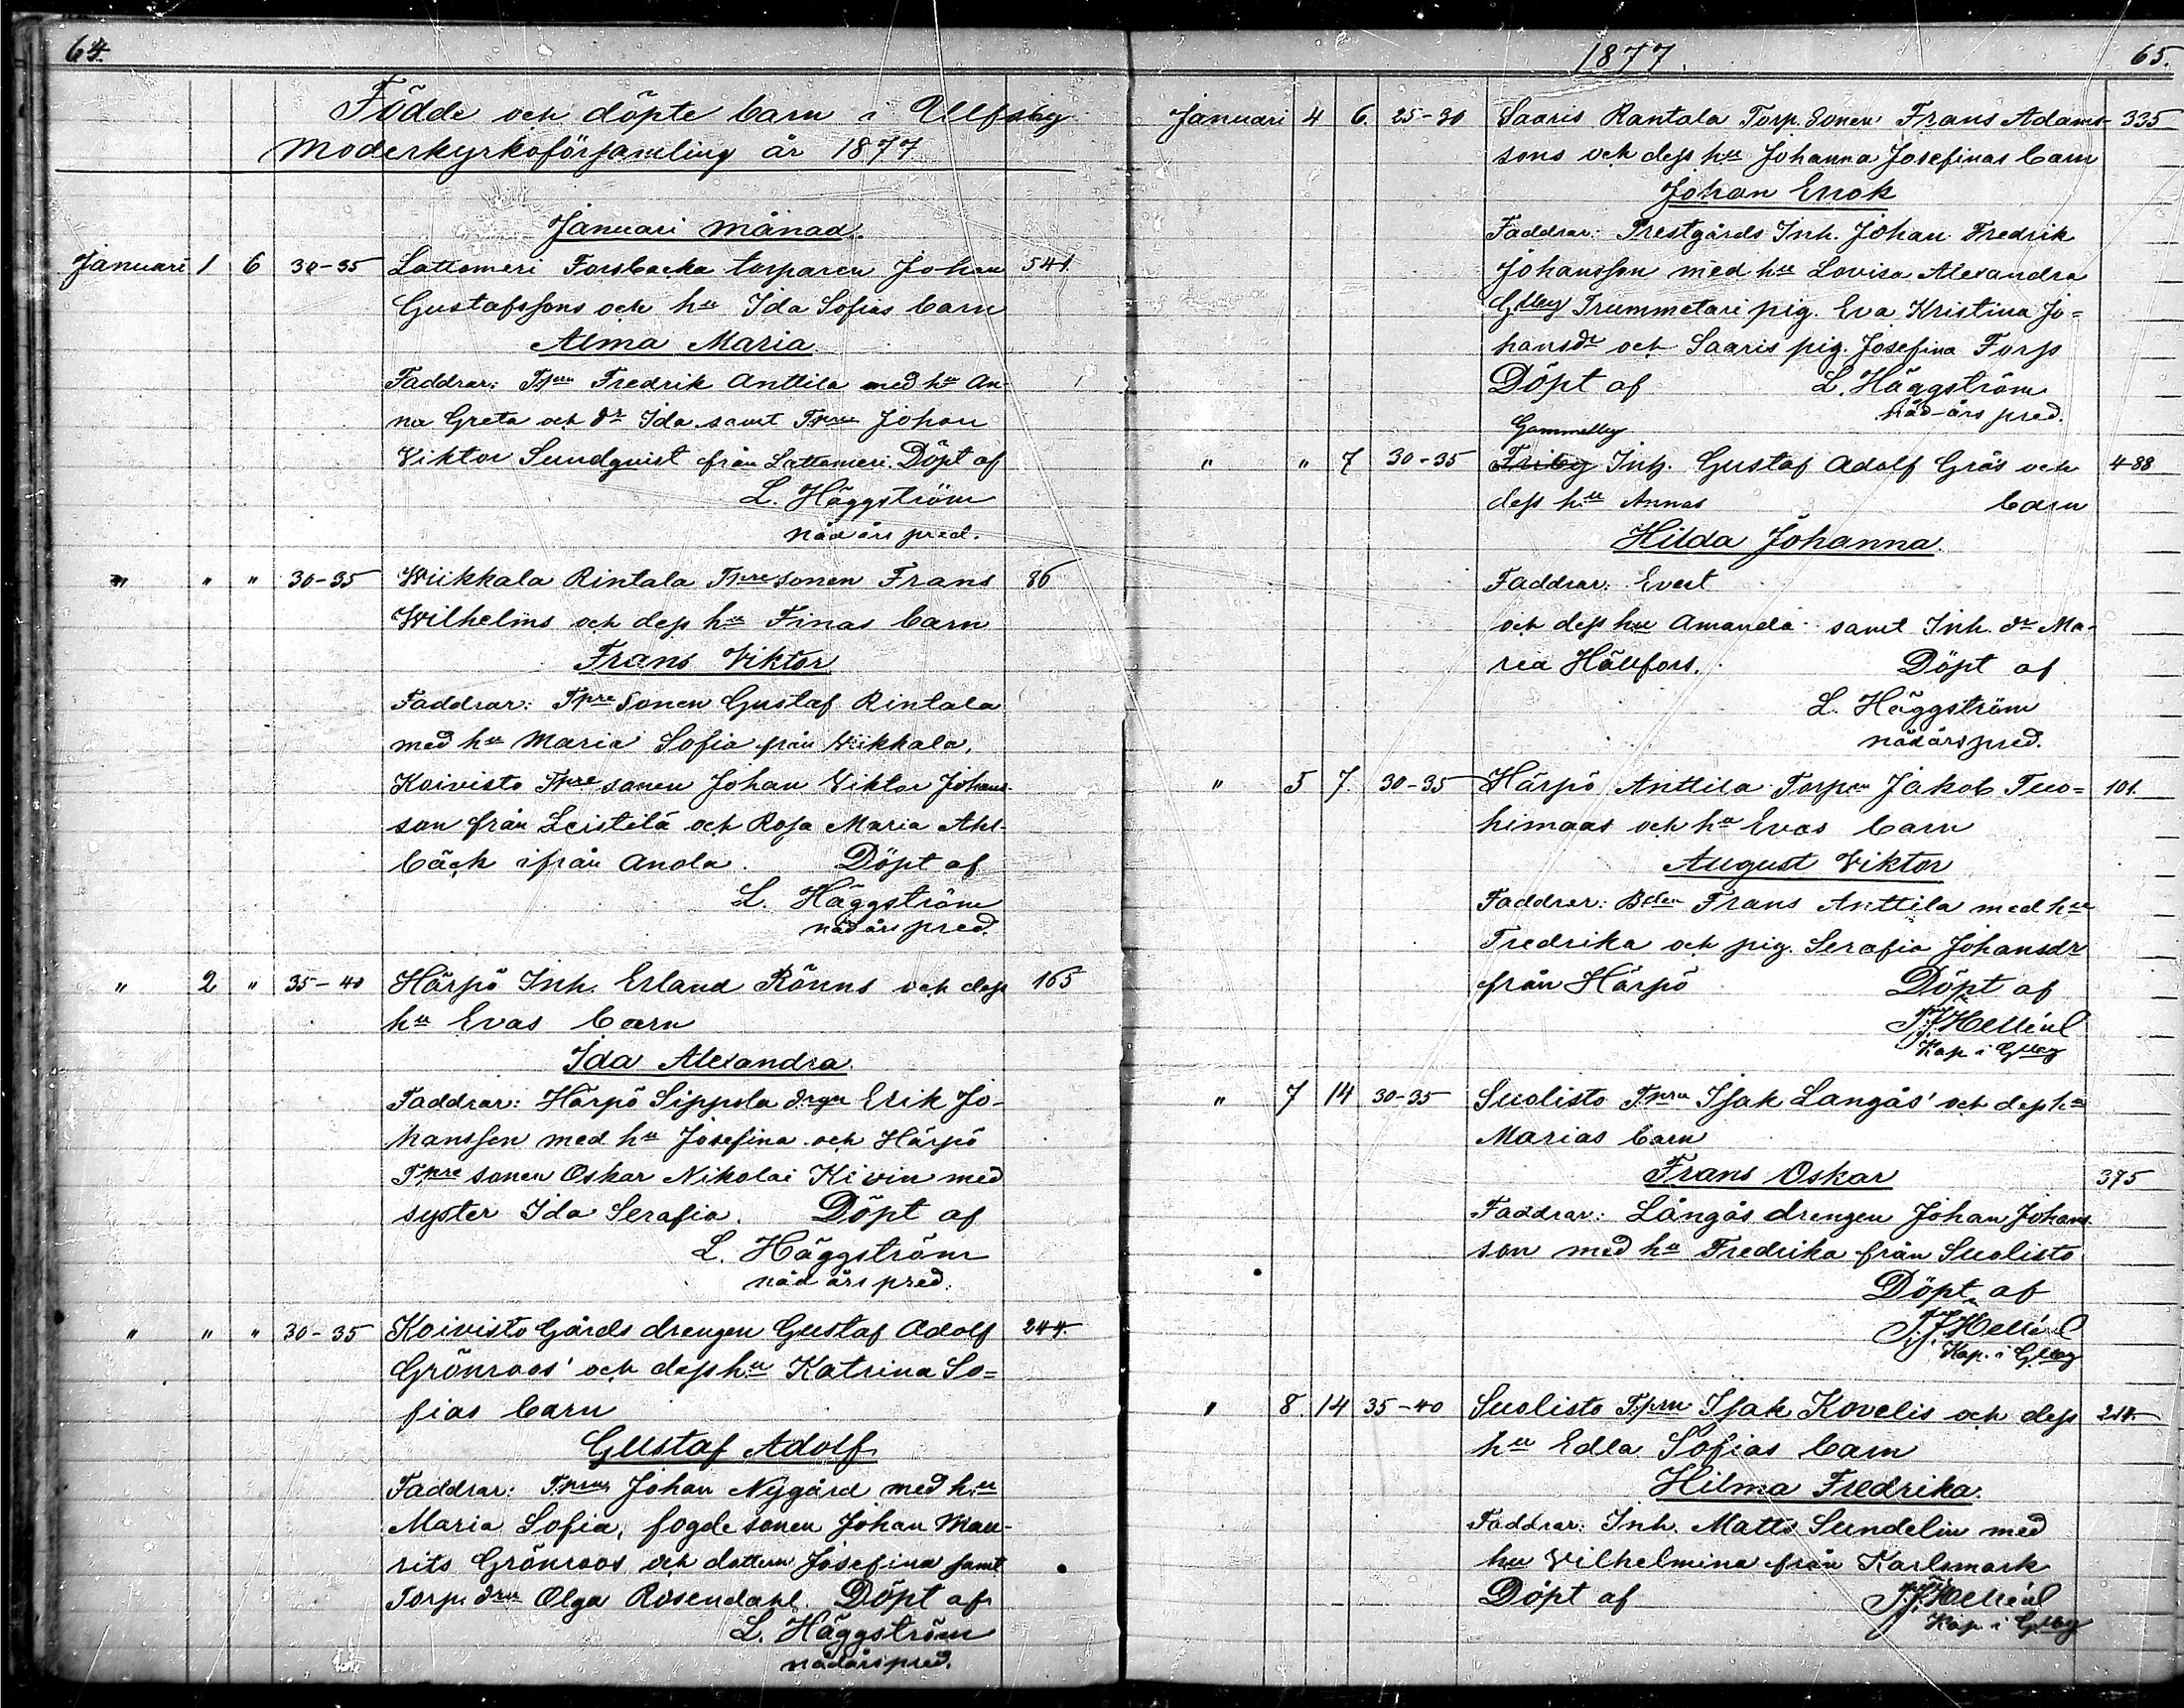 64.
Födde och döpte barn i Ulfsby
Moderkyrkoförsamling år 1877
Januari månad.
Januari 1 6 30-35 Lattomeri Forsbacka torparen Johan 541.
Gustafssons och hu Ida Sofias barn
Alma Maria
Faddrar: Tpren Fredrik Anttila med hu An-
na Greta och dr Ida samt Tpren Johan
Viktor Sundqvist från Lattomeri. Döpt af
L. Häggström
nådårs pred.
" " " 30-35 Wiikkala Rintala Tpresonen Frans 86
Wilhelms och dess hu Finas barn
Frans Viktor
Faddrar: Tpre Sonen Gustaf Rintala
med hu Maria Sofia från Wikkala,
Koivisto Tpre sonen Johan Viktor Johans-
son från Leistilä och Rosa Maria Ahl-
bäck ifrån Anola. Döpt af
L. Häggström
nådårs pred.
" 2 " 35-40 Härpö Inh. Erland Rönns och dess 165
hu Evas barn
Ida Alexandra.
Faddrar: Härpö Sippola drgn Erik Jo-
hansson med hu Josefina och Härpö
Tpre sonen Oskar Nikolai Kivin med
syster Ida Serafia. Döpt af
L. Häggström
nådårs pred.
" " " 30-35 Koivisto Gårds drengen Gustaf Adolf 244.
Grönroos' och dess hu Katrina So=
fias barn
Gustaf Adolf
Faddrar: Tpren Johan Nygård med hu
Maria Sofia, fogde sonen Johan Mau-
rits Grönroos och dottern Josefina samt
Torp. drn Olga Rosendahl. Döpt af
L. Häggström
nådårspred.
1877. 65.
Januari 4 6. 25-30 Saaris Rantala Torp. Sonen Frans Adams- 335
sons och dess hu Johanna Josefinas barn
Johan Errok
Faddrar: Prestgårds Inh. Johan Fredrik
Johansson med hu Lovisa Alexandra
Gllby Trummetari pig. Eva Kristina Jo=
hansdr och Saaris pig. Josefina Forss
Döpt af L. Häggström
nåd-års pred.
Gammelby
" " 7 30-35 Friby Inh. Gustaf Adolf Gräs och 488
dess hu Annas barn
Hilda Johanna.
Faddrar: Evert
och dess hu Amanda samt Inh. dr Ma-
ria Hällfors. Döpt af
L. Häggström
nådårspred.
" 5 7. 30-35 Härpö Anttila Torpen Jakob Tuo= 101.
himaas och hu Evas barn
August Viktor
Faddrar: Bden Frans Anttila med hu
Fredrika och pig. Serafia Johansdr
från Härpö Döpt af
Kap i Gllby
" 7 14 30-35 Suolisto Tpren Isak Langås' och dess hu
Marias barn
Frans Oskar 375
Faddrar: Långås drengen Johan Johans
son med hu Fredrika från Suolisto
Döpt af
Kap. i Gllby
" 8. 14 35-40 Suolisto Tpren Isak Kovelis och dess 214.
hu Edla Sofias barn
Hilma Fredrika.
Faddrar: Inh. Matts Sundelin med
hu Vilhelmina från Karlsmark
Döpt af
Kap. i Gllby